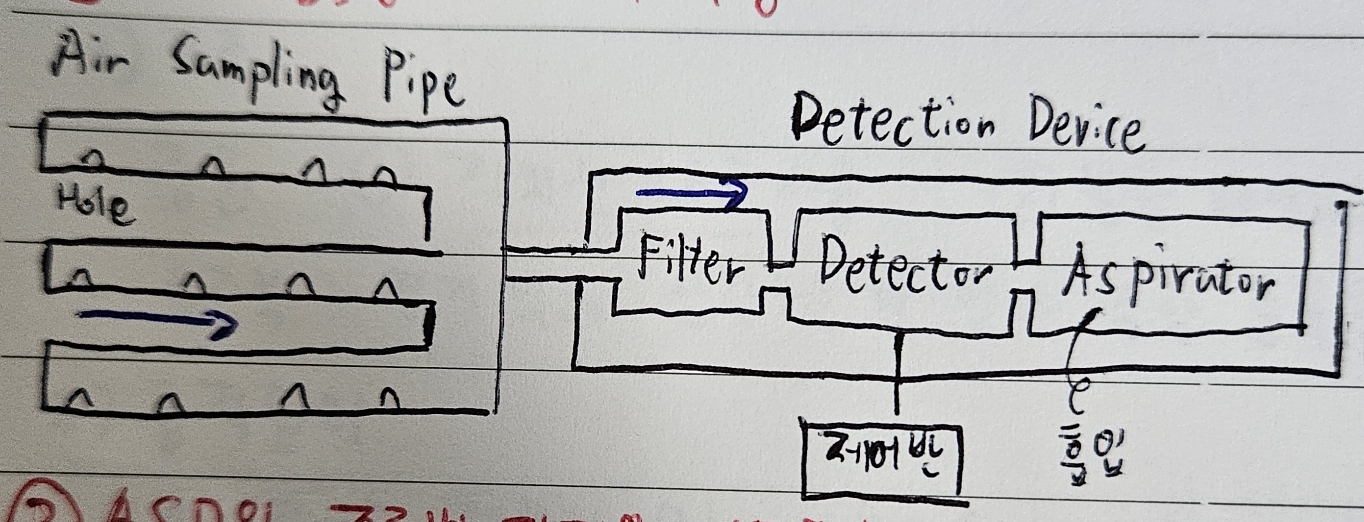 Air Sampling Pipe
Detection Device
Hole
Filter
Detector
Aspirator
제어반
흡입